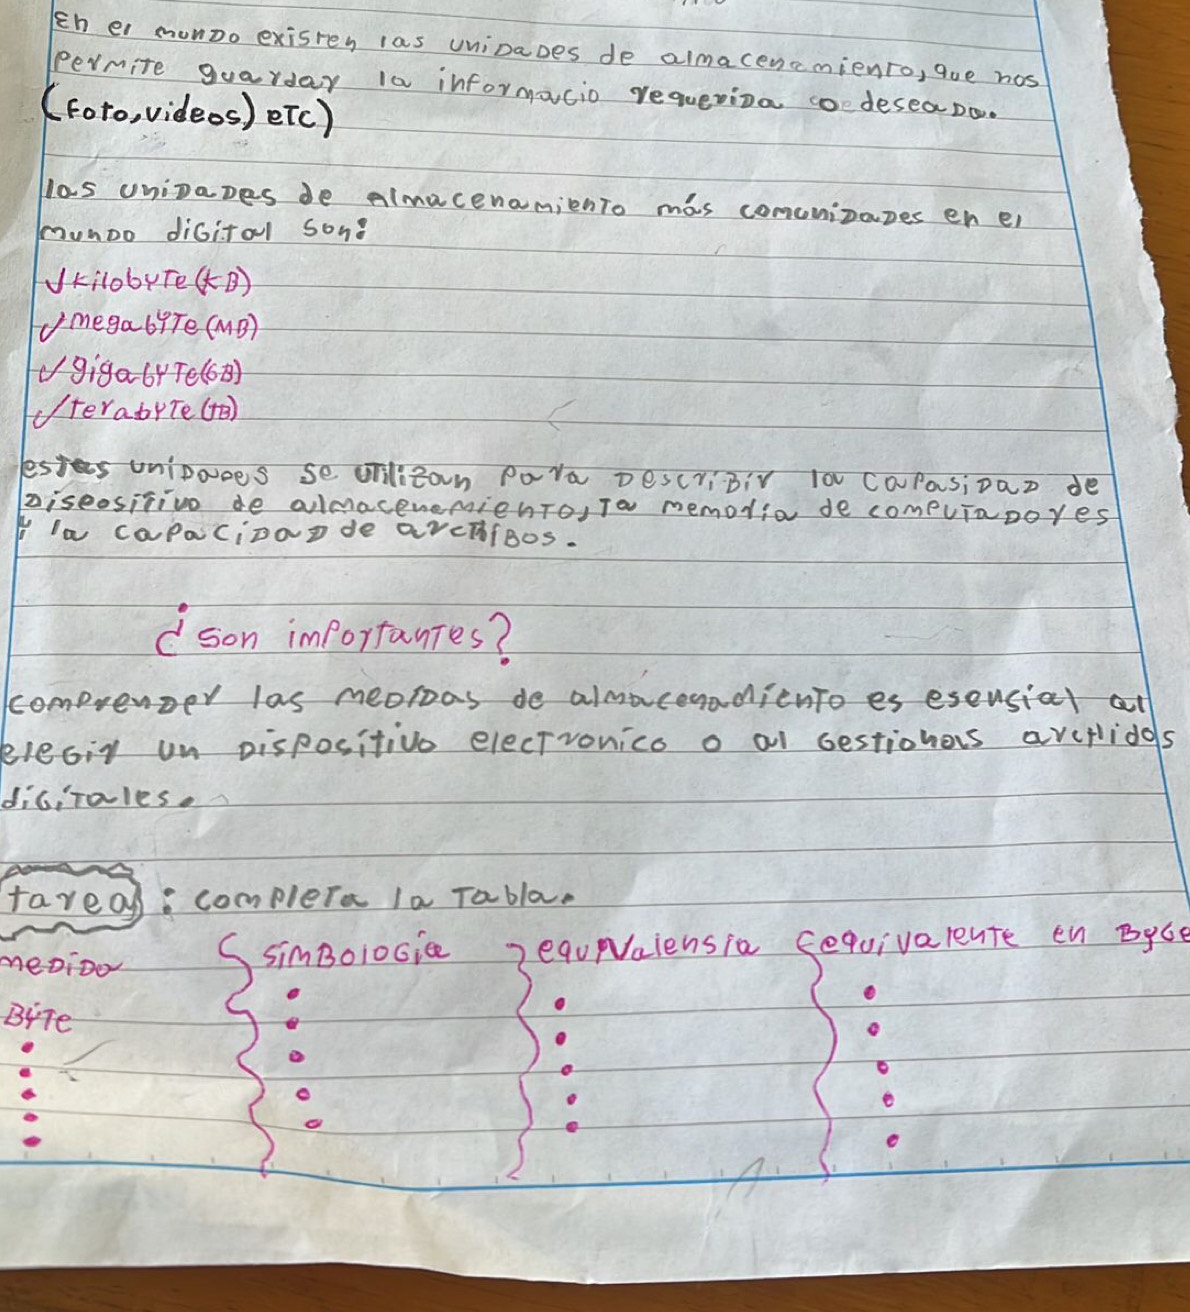 En el mundo existen las unidades de almacenamiento, que nos
permite guardar la informacio requerida o deseada.
(foto, videos) etc)
las unidades de almacenamiento más comunidades en el
mundo digital son:
✓ kilobyte (KB)
✓ megabyte (MB)
✓ gigabyte (GB)
✓ terabyte (TB)
estas unidades se utilizan para describir la capasidad de
dispositivo de almacenemiento, la memoria de computadores
y la capacidad de archibos.
¿son importantes?
comprender las medidas de almacenadiento es esensial al
elegir un dispositivo electronico o al gestionas archidos
digitales.
tarea: completa la tabla.
medida simbologia equivalensia equivalente en Byte
Byte